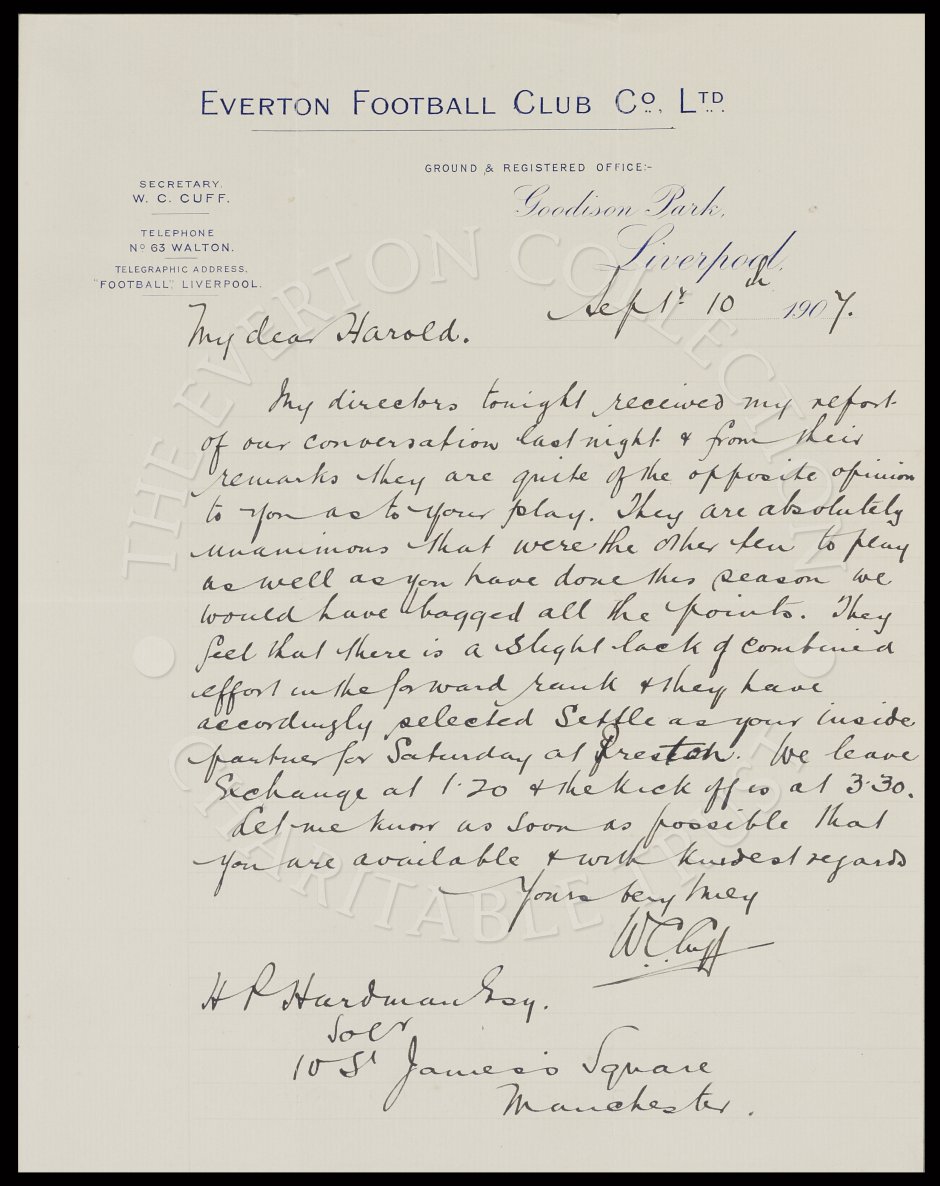 EVERTON FOOTBALL CLUB Co., LTD.
GROUND & REGISTERED OFFICE:-
Goodison Park,
Liverpool.
SECRETARY.
W. C. CUFF.
TELEPHONE
No 63 WALTON.
TELEGRAPHIC ADDRESS.
"FOOTBALL", LIVERPOOL.
Septr 10th 1907.
My dear Harold.
My directors tonight received my report
of our conversation last night & from their
remarks they are quite of the opposite opinion
to you as to your play. They are absolutely
unanimous that were the other ten to play
as well as you have done this season we
would have bagged all the points. They
feel that there is a slight lack of combined
effort in the forward rank & they have
accordingly selected Settle as your inside
partner for Saturday at Preston. We leave
Exchange at 1.20 & the kick off is at 3.30.
Let me know as soon as possible that
you are available & with kindest regards
Yours very truly
W. C. Cuff
H P Hardman Esq.
Solr
10 St James's Square
Manchester.
THE EVERTON COLLECTION
CHARITABLE TRUST